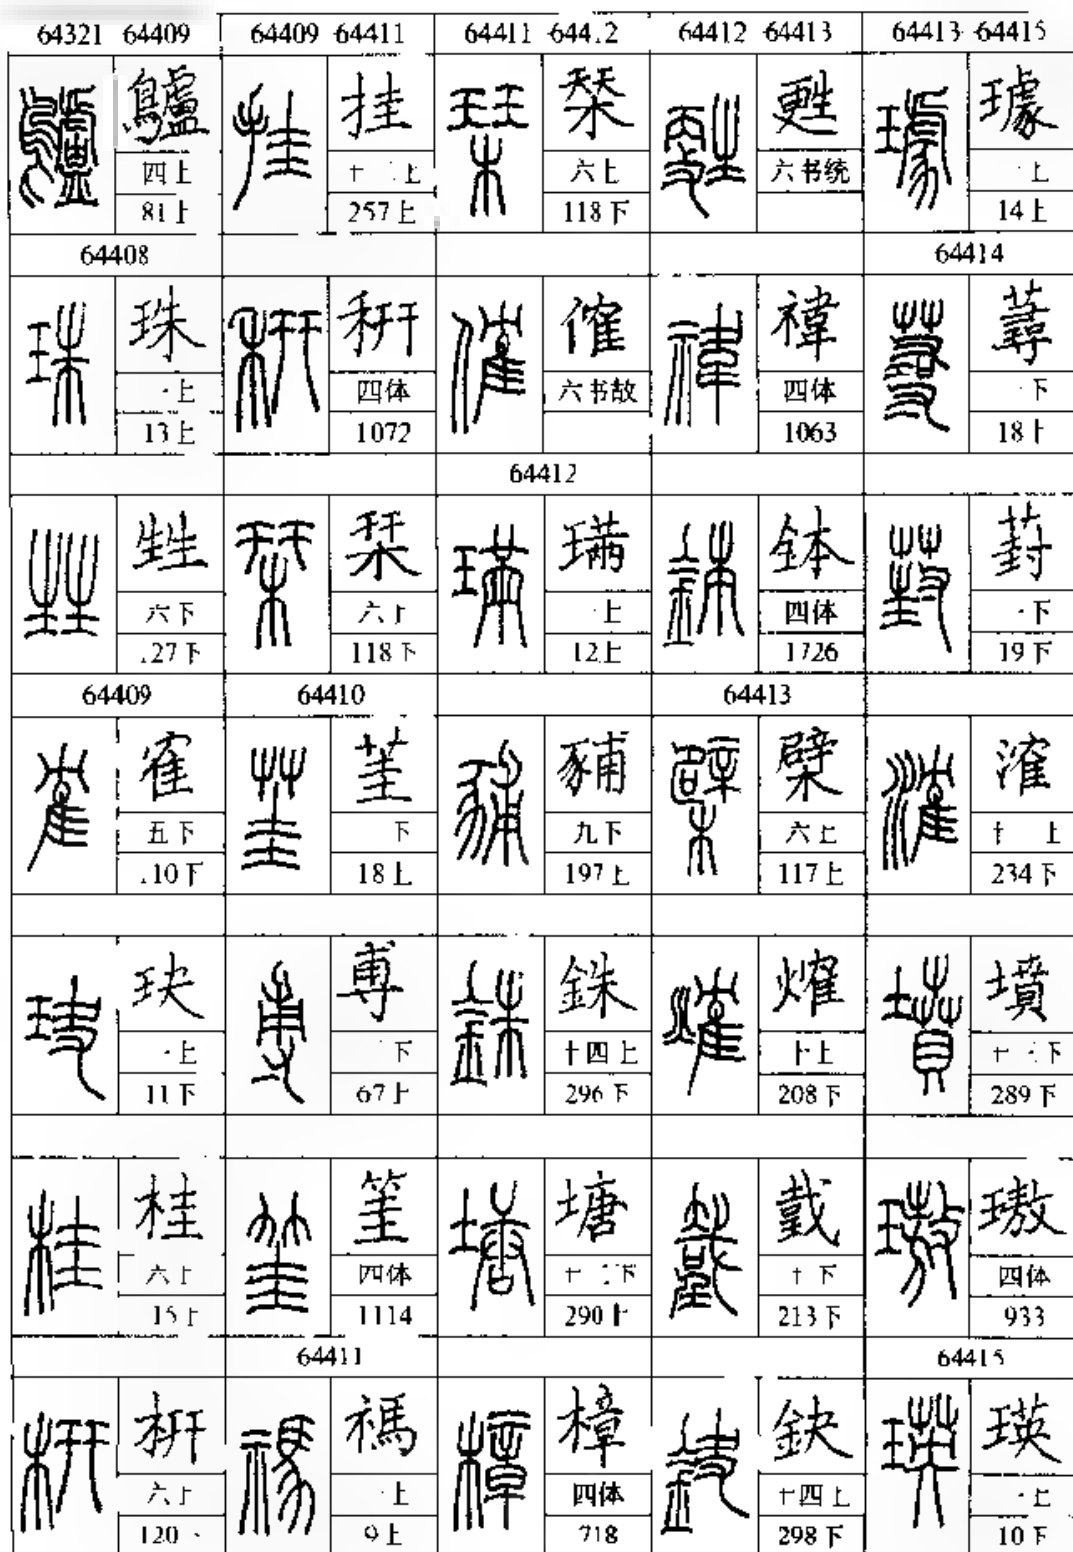 64321 64409
鸕
四上
81上
64408
珠
上
13上
甡
六下
27下
64409
隺
五下
10下
玦
上
11下
桂
六上
15上
枅
六上
120
64409 64411
挂
十二上
257上
秓
四体
1072
栞
六上
118下
64410
茥
下
18上
尃
下
67上
筀
四体
1114
64411
禡
上
9上
64411 64412
琹
六上
118下
傕
六书故
64412
㻴
上
12上
豧
九下
197上
銖
十四上
296下
塘
十三下
290上
樟
四体
718
64412 64413
甦
六书统
禕
四体
1063
鉢
四体
1726
64413
檗
六上
117上
㸌
十上
208下
戴
十下
213下
鈌
十四上
298下
64413 64415
璩
上
14上
64414
蕁
下
18上
葑
下
19下
滖
十上
234下
墳
十三下
289下
璈
四体
933
64415
瑛
上
10下